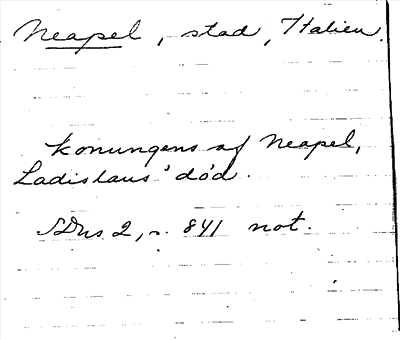 Neapel, stad, Italien.
konungens af Neapel,
Ladislaus' död.
SDns 2, s. 841 not.